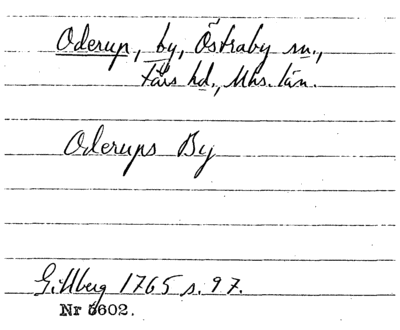 Oderup, by, Östraby sn.,
Färs hd., Mhs. län.
Oderups By
Gillberg 1765 s. 97.
Nr 5602.